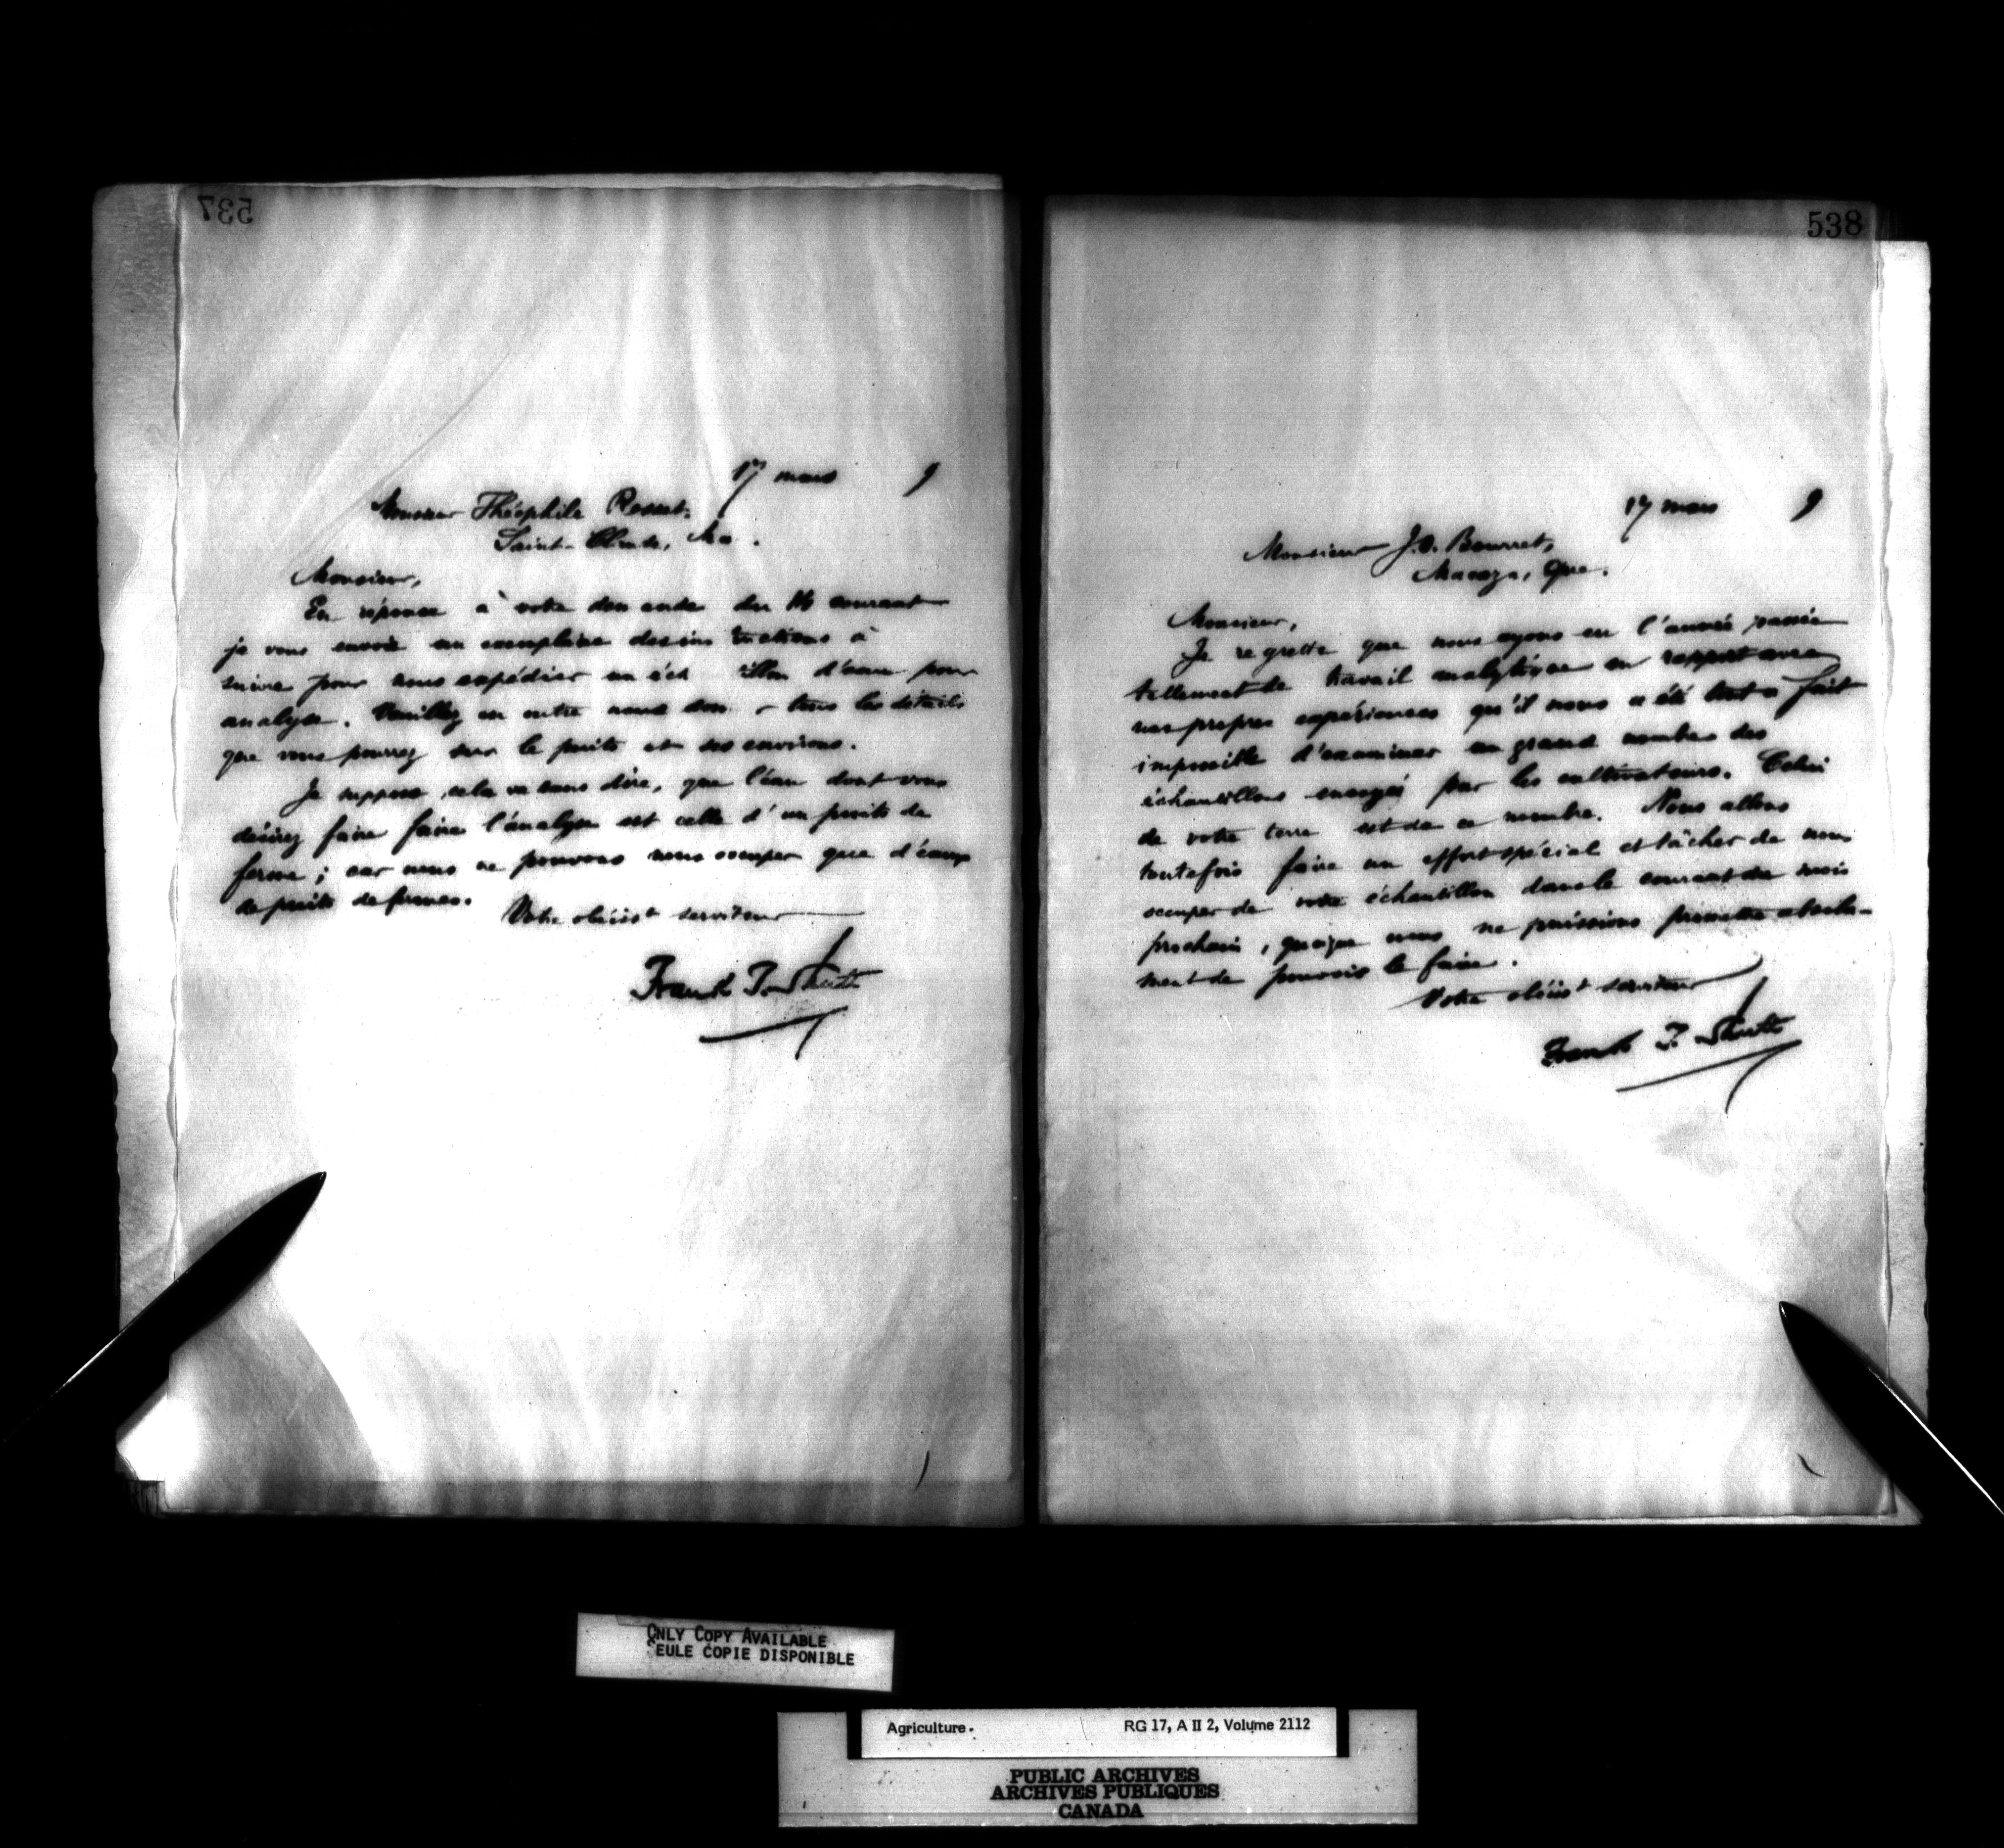 537
17 mars 9
Monsieur Théophile Rosset,
Saint-Claude, Ma .
Monsieur,
En réponse à votre demande du 16 courant
je vous envoie un exemplaire des instructions à
suivre pour nous expédier un éch illon d'eau pour
analyse. Veuillez en outre nous don r tous les détails
que vous pourrez sur le puits et ses environs.
Je suppose, cela va sans dire, que l'eau dont vous
désirez faire faire l'analyse est celle d'un puits de
ferme ; car nous ne pouvons nous occuper que d'eaux
de puits de fermes.
Votre obéist serviteur
Frank T. Shutt
538
17 mars 9
Monsieur J.O. Bourret,
Macaza, Que.
Monsieur,
Je regrette que nous ayons eu l'année passée
tellement de travail analytique en rapport avec
nos propres expériences qu'il nous a été tout a fait
impossible d'examiner un grand nombre des
échantillons envoyés par les cultivateurs. Celui
de votre terre est de ce nombre. Nous allons
toutefois faire un effort spécial et tâcher de nous
occuper de votre échantillon dans le courant du mois
prochain, quoique nous ne puissions promettre absolu-
ment de pouvoir le faire.
Votre obéist serviteur
Frank T. Shutt
ONLY COPY AVAILABLE
SEULE COPIE DISPONIBLE
Agriculture. RG 17, A II 2, Volume 2112
PUBLIC ARCHIVES
ARCHIVES PUBLIQUES
CANADA